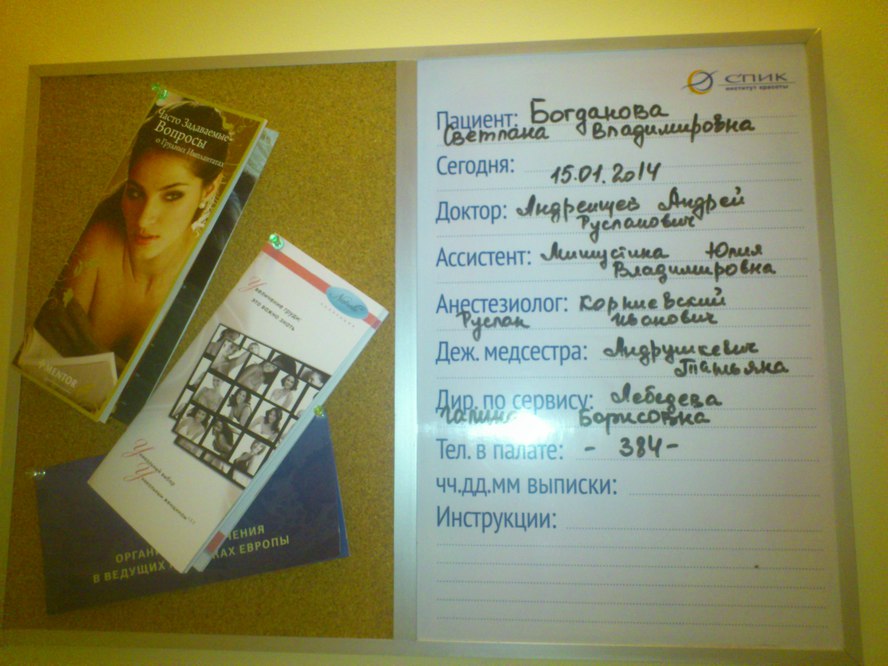 Часто Задаваемые
Вопросы
о Грудных Имплантатах
MENTOR
Увеличение груди:
это важно знать
Natrelle
Уникальный выбор
Уникальным женщинам!!!
ЕНИЯ
ОРГАНИ
В ВЕДУЩИХ АХ ЕВРОПЫ
СПИК
институт красоты
Пациент: Богданова
Светлана Владимировна
Сегодня: 15.01.2014
Доктор: Андреищев Андрей
Русланович
Ассистент: Мишустина Юлия
Владимировна
Анестезиолог: Корниевский
Руслан Иванович
Деж. медсестра: Андрушкевич
Татьяна
Дир. по сервису: Лебедева
Галина Борисовна
Тел. в палате: - 384 -
чч.дд.мм выписки:
Инструкции: